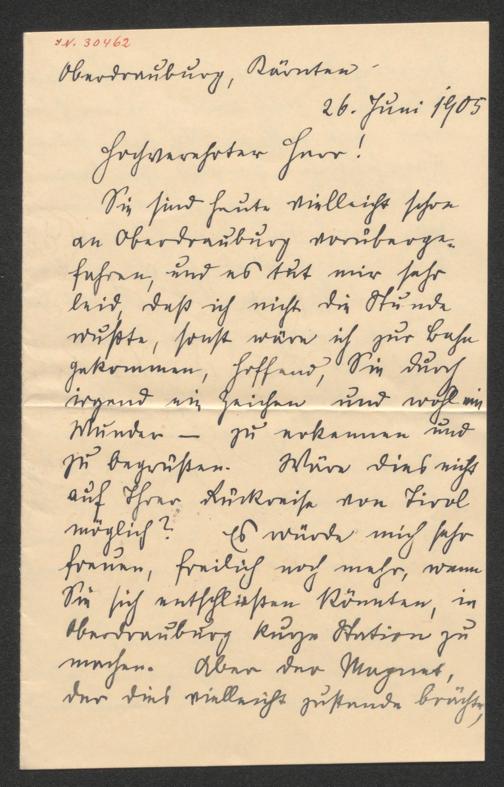 I.N. 30462
Oberdrauburg, Kärnten
26. Juni 1905
Hochverehrter Herr!
Sie sind heute vielleicht schon
an Oberdrauburg vorüberge-
fahren, und es tut mir sehr
leid, daß ich nicht die Stunde
wußte, sonst wäre ich zur Bahn
gekommen, hoffend, Sie durch
irgend ein Zeichen und wohl ein
Wunder — zu erkennen und
zu begrüßen. Wäre dies nicht
auf Ihrer Rückreise von Tirol
möglich? Es würde mich sehr
freuen, freilich noch mehr, wenn
Sie sich entschließen könnten, in
Oberdrauburg kurze Station zu
machen. Aber der Magnet,
der dies vielleicht zustande brächte,